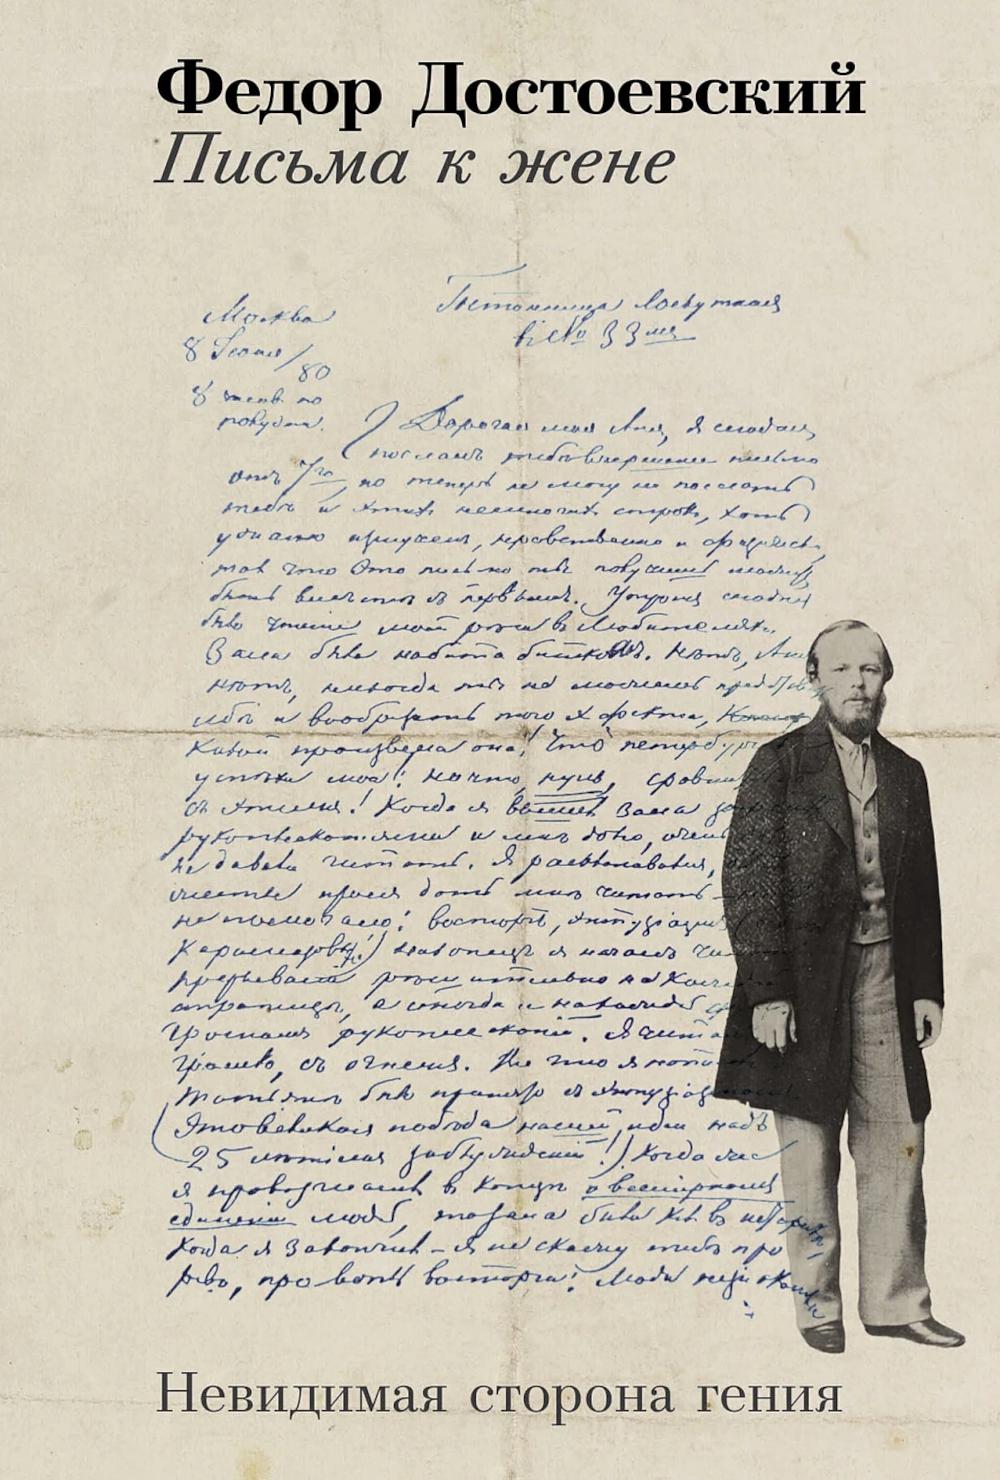 Федор Достоевский
Письма к жене
Гостинница Лоскутная
в № 33мъ
Москва
8 Іюня/80
8 часов. по
полудни.
Дорогая моя Аня, я сегодня
послалъ тебѣ вчерашнее письмо
отъ 7го, но теперь не могу не послать
тебѣ и этихъ немногихъ строкъ, хоть
ужасно измученъ, нравственно и физически,
такъ что это письмо ты получишь можетъ
быть вмѣстѣ съ первымъ. Утромъ сегодня
было чтеніе моей рѣчи въ Любителяхъ.
Зала была набита биткомъ. Нѣтъ, Аня
нѣтъ, никогда ты не можешь представить
себѣ и вообразить того эффекта,
какой произвела она! Что петербургскіе
успѣхи мои! ничто, нуль,
съ этимъ! Когда я вышелъ зала
рукоплесканіями и мнѣ долго, очень
не давали читать. Я раскланивался,
жесты прося дать мнѣ читать –
не помогало: восторгъ, энтузіазмъ
Карамазовы!) Наконецъ я началъ
прерывали рѣшительно на каждой
страницѣ, а иногда и на каждой
громомъ рукоплесканій. Я читалъ
громко, съ огнемъ. Все что я написалъ
Татьянѣ было принято съ энтузіазмомъ.
(Это великая побѣда нашей идеи надъ
25 лѣтіемъ заблужденій!) Когда же
я провозгласилъ въ концѣ о всемірномъ
единеніи людей, то зала была какъ въ истерикѣ,
когда я закончилъ – я не скажу тебѣ про
ревъ, про вопль восторга: люди незнакомые
Невидимая сторона гения